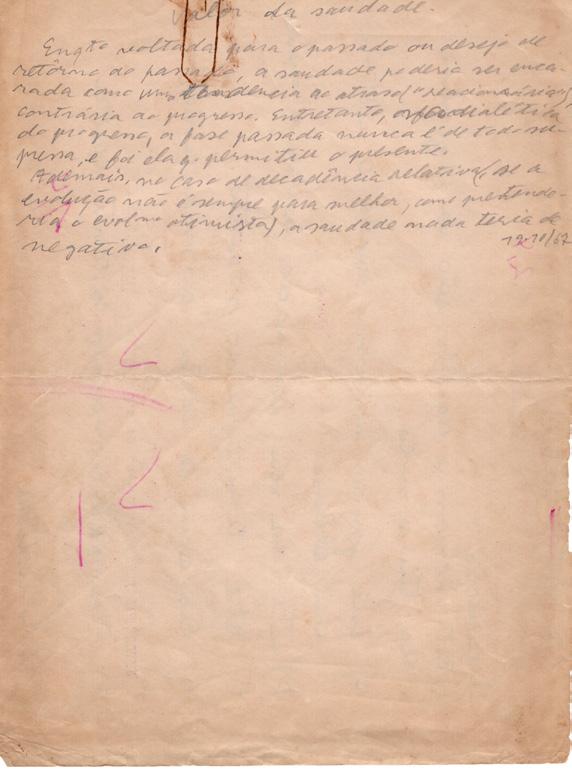 Valor da saudade.
Enqto voltada para o passado ou desejo de
retôrno do passado, a saudade poderia ser enca-
rada como uma tendência ao atraso (o reacionário),
contrária ao progresso. Entretanto, dialética
do progresso, a fase passada nunca é de todo su-
pressa, e foi ela q. permitiu o presente.
Ademais, no caso de decadência relativa (se a
evolução não é sempre para melhor, como pretende-
ria o evolmo otimista), a saudade nada teria de
negativo.
12-10/67